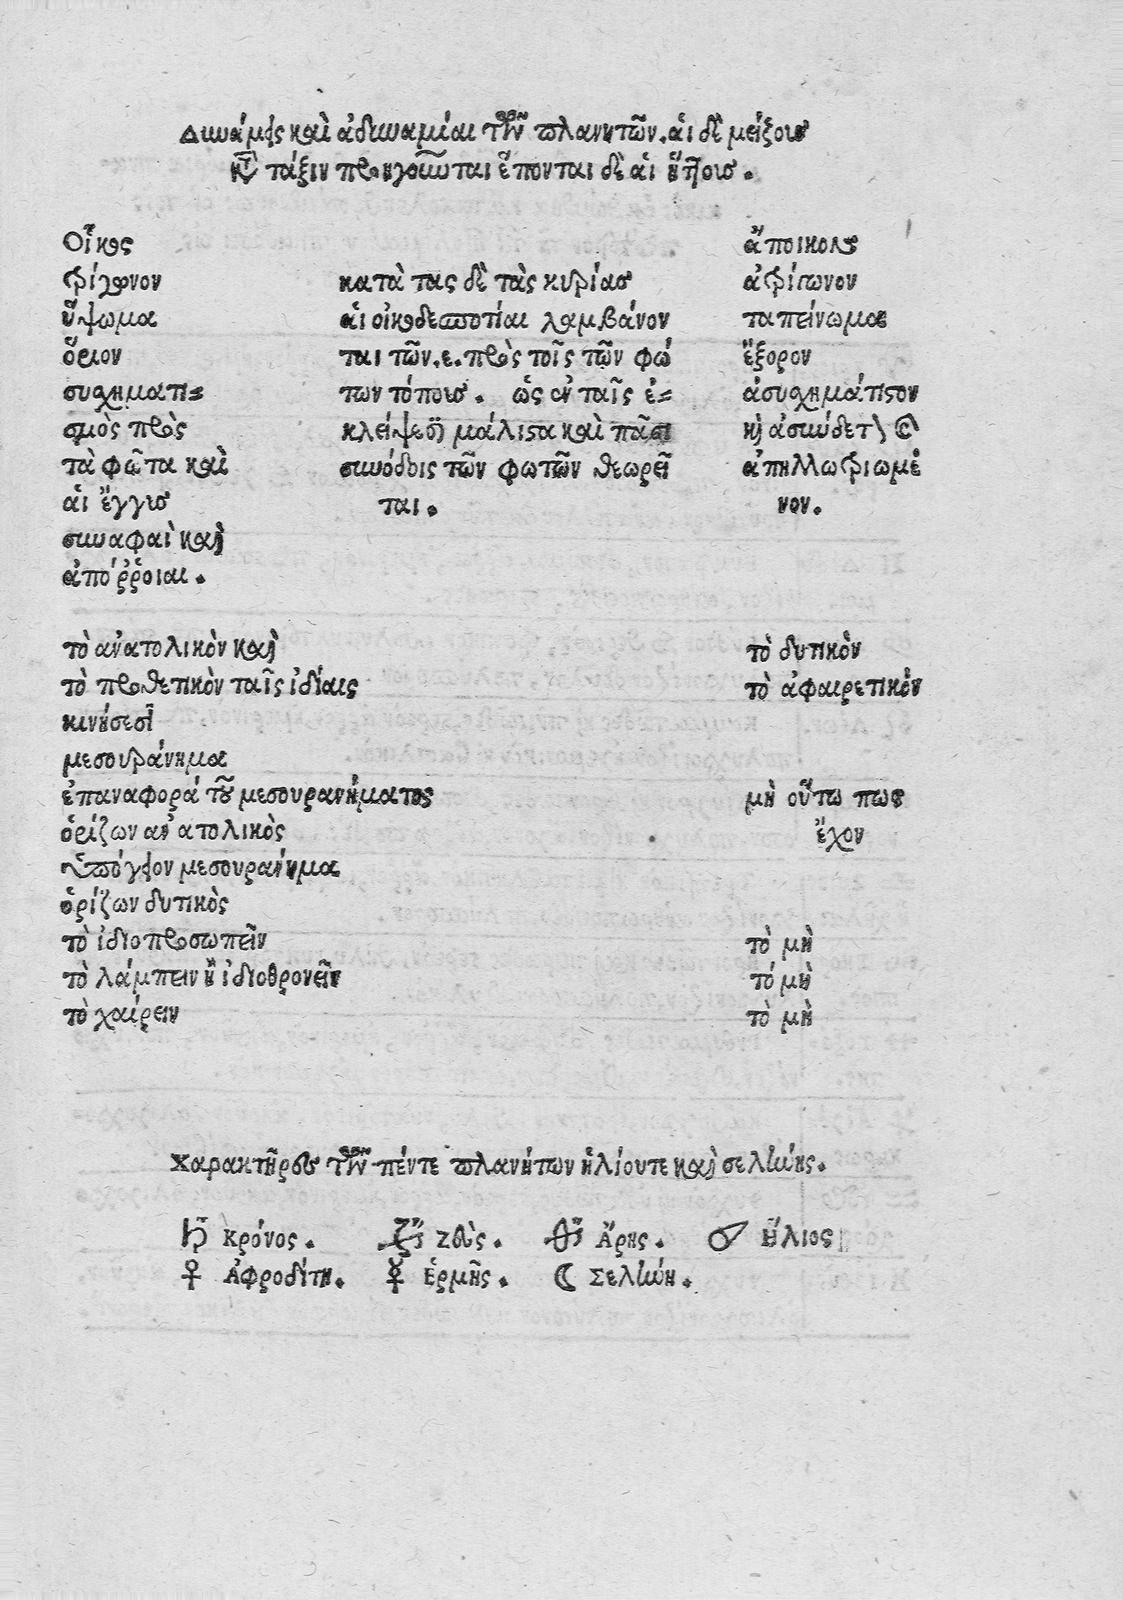 Δυνάμεις καὶ ἀδυναμίαι τῶν πλανητῶν. αἱ δὲ μείζους
κτ̀ τάξιν προηγοῦνται ἕπονται δὲ αἱ ἥττους.
Οἶκος
τρίγωνον
ὕψωμα
ὅριον
συσχηματι=
σμὸς πρὸς
τὰ φῶτα καὶ
αἱ ἔγγισ
συναφαὶ καὶ
ἀπόῤῥοιαι.
κατὰ τας δὲ τὰς κυρίας
αἱ οἰκοδεσποτίαι λαμβάνον
ται τῶν. ε. πρὸς τοῖς τῶν φώ
των τόποις. ὡς ἐν ταῖς ἐ=
κλείψεσι μάλιστα καὶ πᾶσι
συνόδοις τῶν φωτῶν θεωρεῖ
ται.
ἄποικον
ἀτρίγωνον
ταπείνωμα
ἔξορον
ἀσυσχημάτιστον
καὶ ἀσύνδετ
ἀπηλλωτριωμέ
νον.
τὸ ἀνατολικὸν καὶ
τὸ προθετικὸν ταῖς ἰδίαις
κινήσεσι
μεσουράνημα
ἐπαναφορά τοῦ μεσουρανήματος
ὁρίζων ἀνατολικὸς
ὑπόγειον μεσουράνημα
ὁρίζων δυτικὸς
τὸ ἰδιοπροσωπεῖν
τὸ λάμπειν ἢ ἰδιοθρονεῖν
τὸ χαίρειν
τὸ δυτικὸν
τὸ ἀφαιρετικὸν
μὴ οὕτω πως
ἔχον
τὸ μὴ
τὸ μὴ
τὸ μὴ
Χαρακτῆρες τῶν πέντε πλανήτων ἡλίου τε καὶ σελήνης.
♄ Κρόνος. ♃ Ζεὺς. Ἄρης. Ἥλιος
♀ Ἀφροδίτη. ☿ Ἑρμῆς. ☾ Σελήνη.